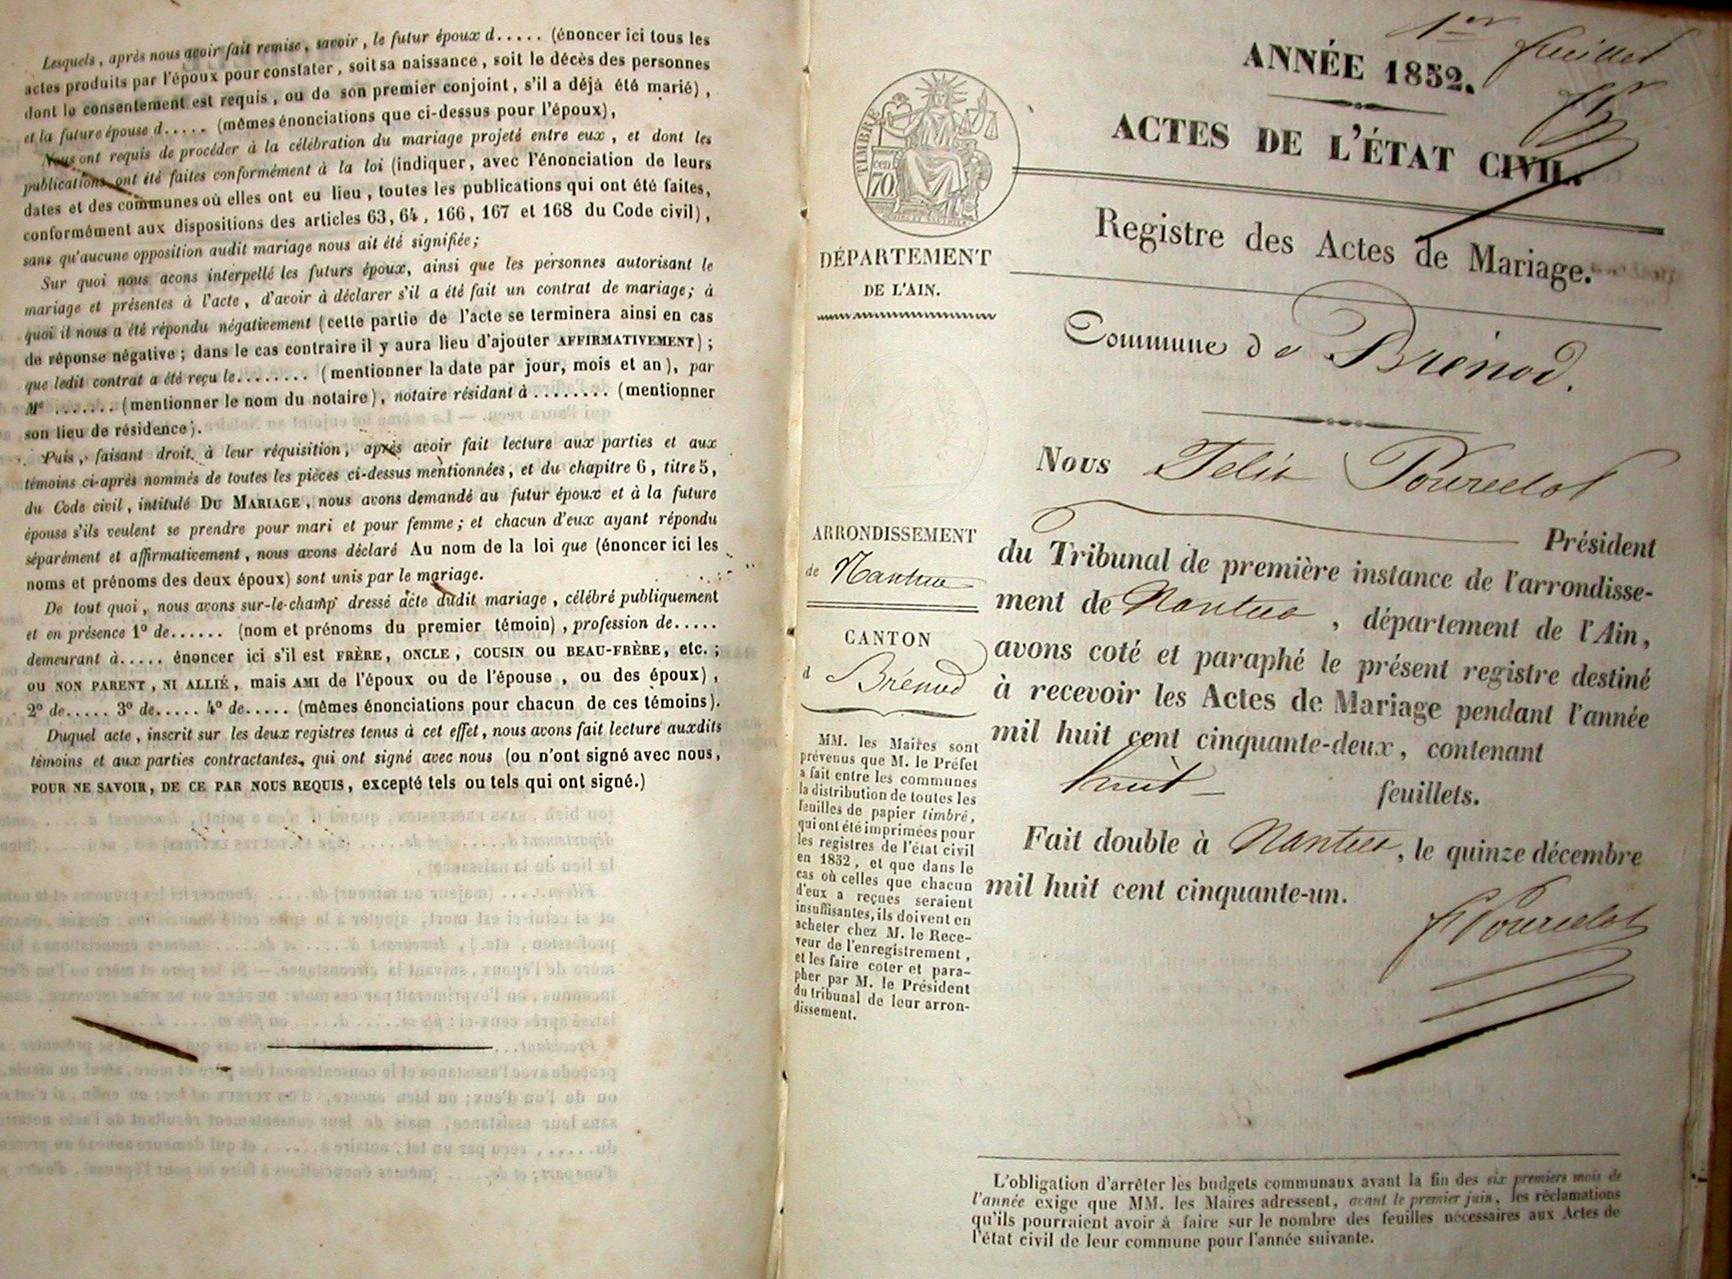 Lesquels, après nous avoir fait remise, savoir, le futur époux d..... (énoncer ici tous les
actes produits par l'époux pour constater, soit sa naissance, soit le décès des personnes
dont le consentement est requis, ou de son premier conjoint, s'il a déjà été marié),
et la future épouse d..... (mêmes énonciations que ci-dessus pour l'époux),
Nous ont requis de procéder à la célébration du mariage projeté entre eux, et dont les
publications ont été faites conformément à la loi (indiquer, avec l'énonciation de leurs
dates et des communes où elles ont eu lieu, toutes les publications qui ont été faites,
conformément aux dispositions des articles 63, 64, 166, 167 et 168 du Code civil),
sans qu'aucune opposition audit mariage nous ait été signifiée;
Sur quoi nous acons interpellé les futurs époux, ainsi que les personnes autorisant le
mariage et présentes à l'acte, d'avoir à déclarer s'il a été fait un contrat de mariage; à
quoi il nous a été répondu négativement (cette partie de l'acte se terminera ainsi en cas
de réponse négative; dans le cas contraire il y aura lieu d'ajouter AFFIRMATIVEMENT);
que ledit contrat a été reçu le........ (mentionner la date par jour, mois et an), par
Me ....... (mentionner le nom du notaire), notaire résidant à ........ (mentionner
son lieu de résidence).
Puis, faisant droit à leur réquisition, après avoir fait lecture aux parties et aux
témoins ci-après nommés de toutes les pièces ci-dessus mentionnées, et du chapitre 6, titre 5,
du Code civil, intitulé DU MARIAGE, nous avons demandé au futur époux et à la future
épouse s'ils veulent se prendre pour mari et pour femme; et chacun d'eux ayant répondu
séparément et affirmativement, nous avons déclaré Au nom de la loi que (énoncer ici les
noms et prénoms des deux époux) sont unis par le mariage.
De tout quoi, nous avons sur-le-champ dressé acte dudit mariage, célébré publiquement
et en présence 1º de...... (nom et prénoms du premier témoin), profession de.....
demeurant à..... énoncer ici s'il est FRÈRE, ONCLE, COUSIN OU BEAU-FRÈRE, etc.;
OU NON PARENT, NI ALLIÉ, mais AMI de l'époux ou de l'épouse, ou des époux),
2º de..... 3º de..... 4º de..... (mêmes énonciations pour chacun de ces témoins).
Duquel acte, inscrit sur les deux registres tenus à cet effet, nous avons fait lecture auxdits
témoins et aux parties contractantes, qui ont signé avec nous (ou n'ont signé avec nous,
POUR NE SAVOIR, DE CE PAR NOUS REQUIS, excepté tels ou tels qui ont signé.)
1er feuillet
ANNÉE 1852.
ACTES DE L'ÉTAT CIVIL.
TIMBRE
cen
70
DÉPARTEMENT
DE L'AIN.
Registre des Actes de Mariage.
Commune de Brénod.
Nous Félix Pourcelot
Président
du Tribunal de première instance de l'arrondisse-
ment de Nantua, département de l'Ain,
avons coté et paraphé le présent registre destiné
à recevoir les Actes de Mariage pendant l'année
mil huit cent cinquante-deux, contenant
huit feuillets.
Fait double à Nantua, le quinze décembre
mil huit cent cinquante-un.
F Pourcelot
ARRONDISSEMENT
de Nantua
CANTON
d Brénod
MM. les Maires sont
prévenus que M. le Préfet
a fait entre les communes
la distribution de toutes les
feuilles de papier timbré,
qui ont été imprimées pour
les registres de l'état civil
en 1852, et que dans le
cas où celles que chacun
d'eux a reçues seraient
insuffisantes, ils doivent en
acheter chez M. le Rece-
veur de l'enregistrement,
et les faire coter et para-
pher par M. le Président
du tribunal de leur arron-
dissement.
L'obligation d'arrêter les budgets communaux avant la fin des six premiers mois de
l'année exige que MM. les Maires adressent, avant le premier juin, les réclamations
qu'ils pourraient avoir à faire sur le nombre des feuilles nécessaires aux Actes de
l'état civil de leur commune pour l'année suivante.